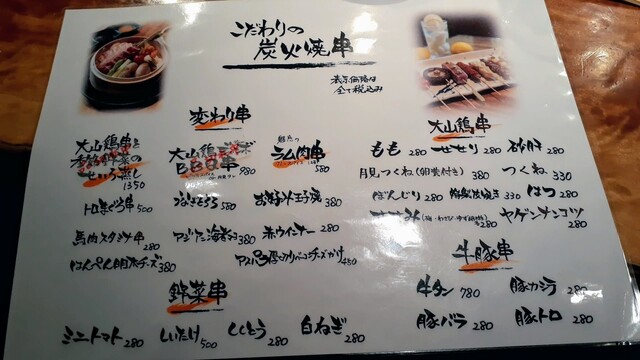 こだわりの
炭火焼串
表示価格は
全て税込み
変わり串
大山鶏串と
季節野菜の
せいろ蒸し
1350
大山鶏
BBQ串 980
ラム肉串
580
トロまぐろ串 500
うなぎとろろ 580
お好み玉子焼 380
馬肉スタミナ串
280
アジアン海老マヨ 380
赤ウインナー 280
はんぺん明太チーズ 380
チーズがけ 450
野菜串
ミニトマト 280
しいたけ 500
ししとう 280
白ねぎ 280
大山鶏串
もも 280
せせり 280
砂肝 280
月見つくね(卵黄付き) 380
つくね 330
ぼんじり 280
330
はつ 280
280
ヤゲンナンコツ
280
牛豚串
牛タン 780
豚カシラ 280
豚バラ 280
豚トロ 280